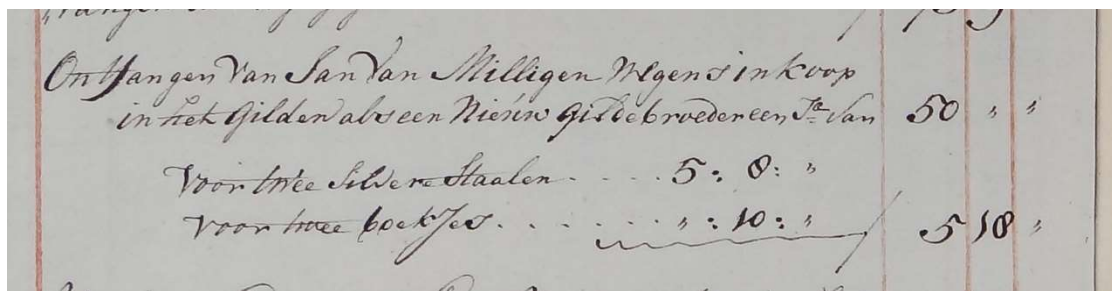 Ontfangen Van Jan Van Milligen Wegens inkoop
in het Gilden als een Nieuw Gildebroeder een Sa. van 50 " "
Voor twee Silvere Staalen . . . . 5 : 8 : "
Voor twee boekjes . . . . . . " : 10 : " / 5 18 "